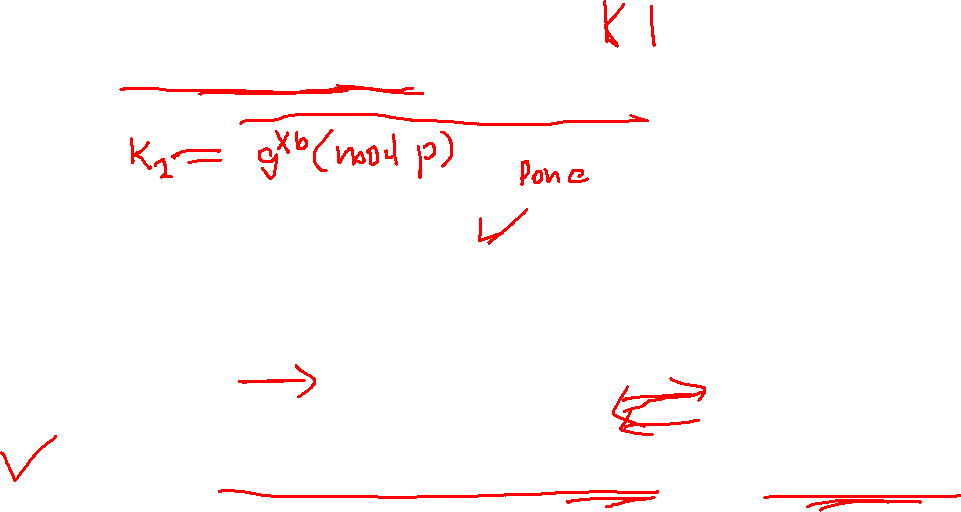 K1
K₂ = g^xb (mod p)
Done